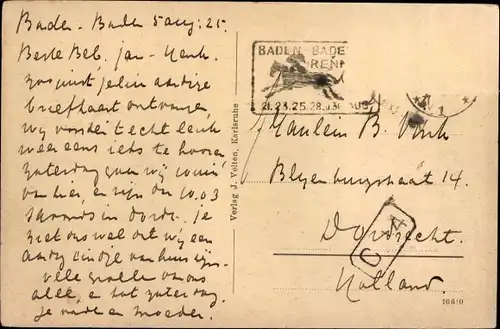 Baden - Baden 5 aug: 25.
Beste Beb. jan - Henk.
zoo juist jelui aardige
briefkaart ontvangen,
wij vonden 't echt leuk
weer eens iets te hooren
zaterdag gaan wij
van hier, en zijn om 10.03
's avonds in Dordr. Je
ziet ons wel ont wij een
aardig eindje van huis zijn.
vele groeten van ons
alle, en tot zaterdag.
je vader en moeder.
Verlag J. Velten, Karlsruhe
BADEN BADE
RENN
21.23.25.28.u.30. AUG.
Fräulein B.
14.
Dordrecht.
Holland.